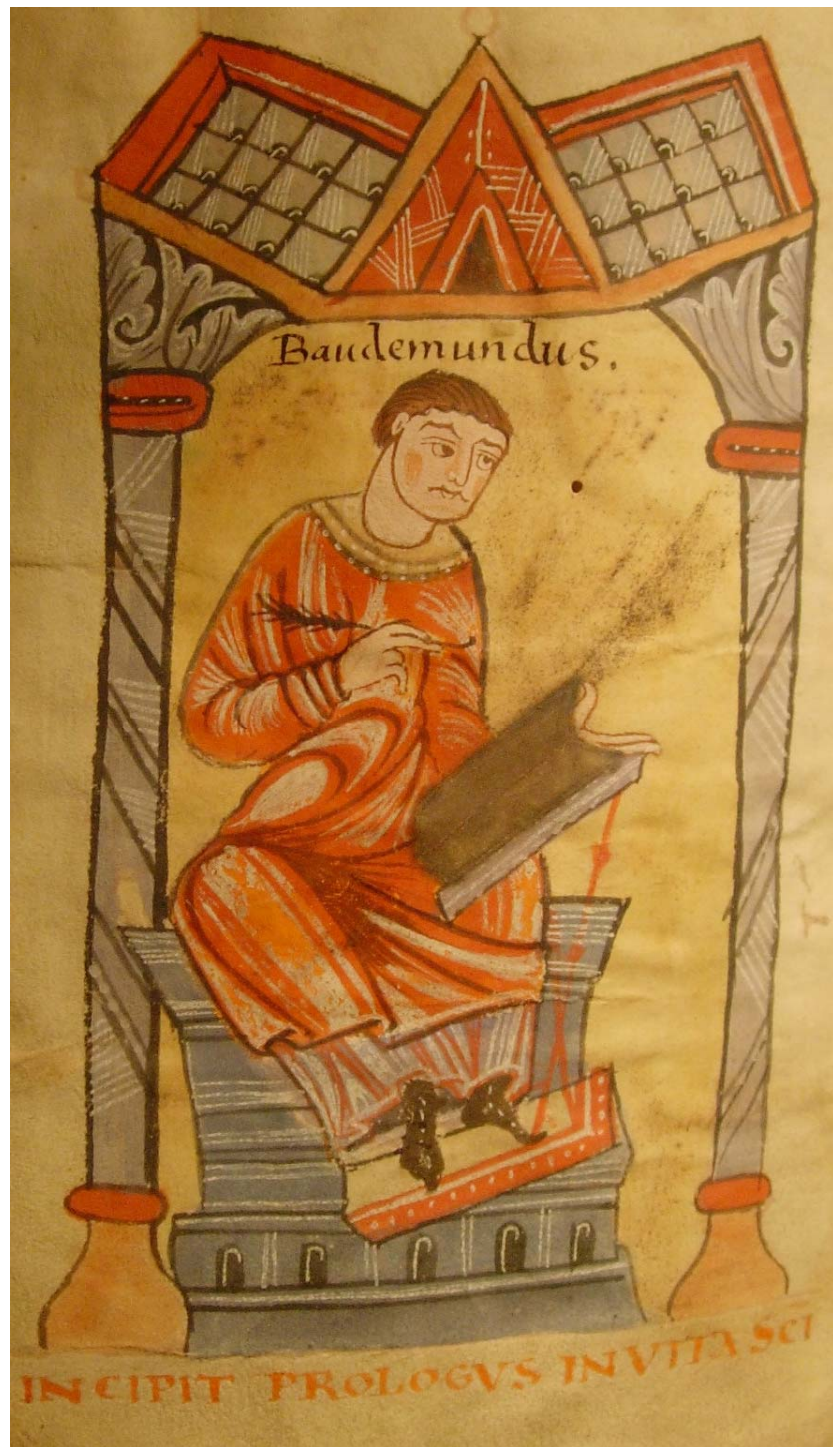 Baudemundus.
INCIPIT PROLOGVS IN VITA SCI